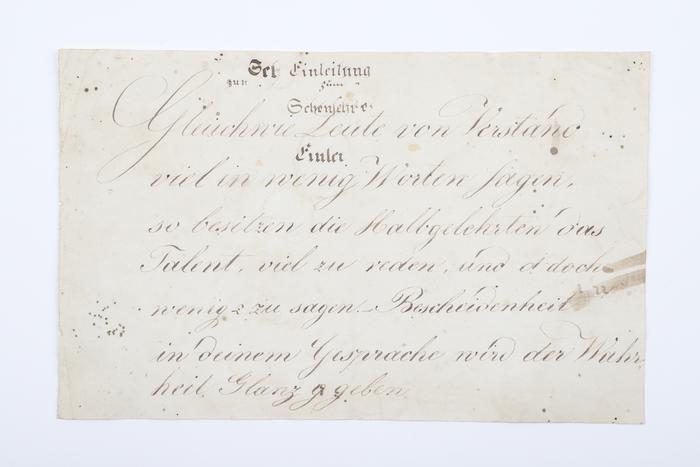 Sct Einleitung
zur zum
Schönschr
Gleichwie Leute von Verstand
Einlei
viel in wenig Worten sagen,
so besitzen die Halbgelehrten das
Talent, viel zu reden, und d doch
wenig z zu sagen. Bescheidenheit
in deinem Gespräche wird der Wahr-
heit Glanz g geben.